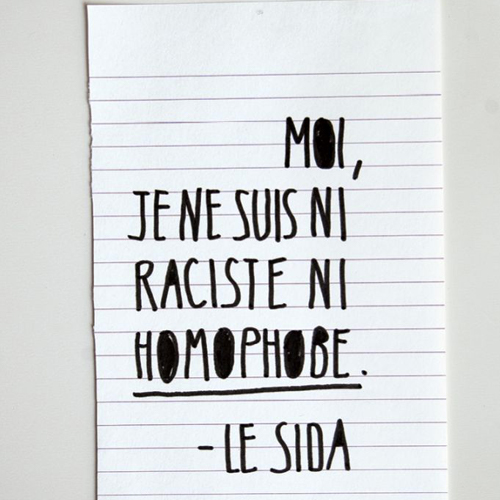 MOI,
JE NE SUIS NI
RACISTE NI
HOMOPHOBE.
-LE SIDA